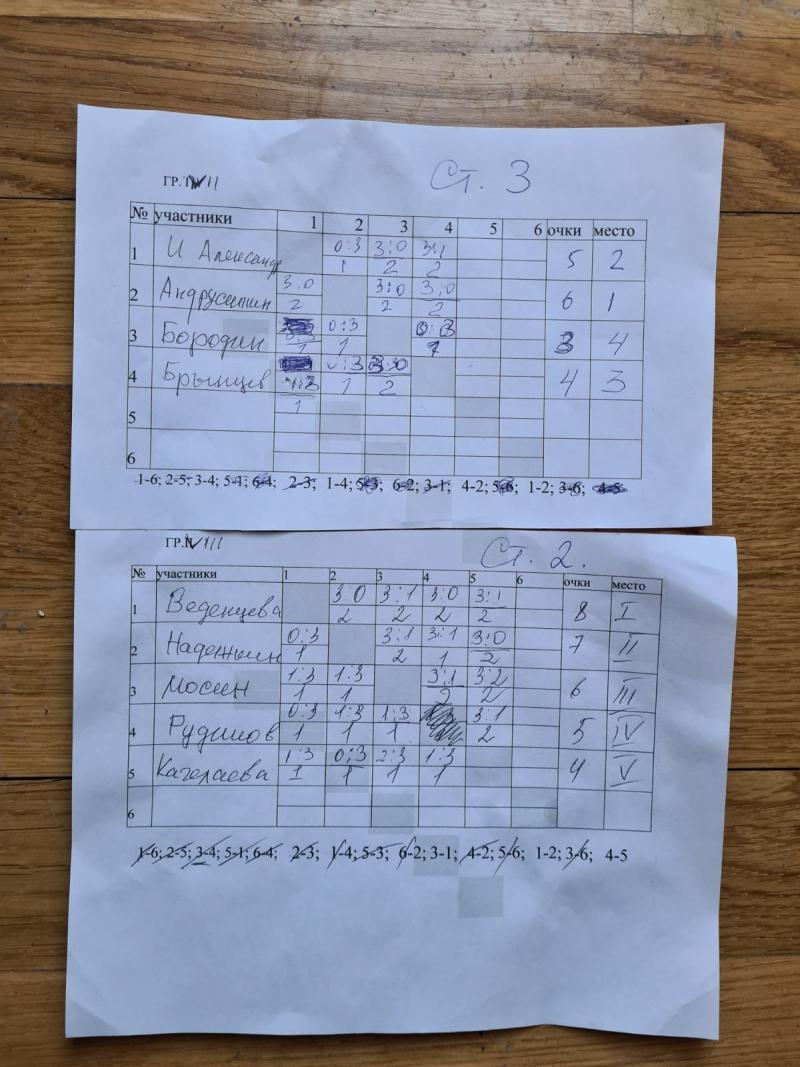 ГР. VII Ст. 3
№ участники 1 2 3 4 5 6 очки место
1 И Александр 0:3 3:0 3:1 5 2
1 2 2
2 3:0 3:0 3:0 6 1
2 2 2
3 Бородин 0:3 0:3 3 4
1 1 1
4 Брынцев 0:3 3:0 4 3
1 2
1
5
6
1-6; 2-5; 3-4; 5-1; 6-4; 2-3; 1-4; 5-3; 6-2; 3-1; 4-2; 5-6; 1-2; 3-6; 4-5
ГР. VIII Ст. 2.
№ участники 1 2 3 4 5 6 очки место
1 Веденцева 3:0 3:1 3:0 3:1 8 I
2 2 2 2
2 0:3 3:1 3:1 3:0 7 II
1 2 1 2
3 Мосин 1:3 1:3 3:1 3:2 6 III
1 1 2 2
4 0:3 1:3 1:3 3:1 5 IV
1 1 1 2
5 1:3 0:3 2:3 1:3 4 V
1 1 1 1
6
1-6; 2-5; 3-4; 5-1; 6-4; 2-3; 1-4; 5-3; 6-2; 3-1; 4-2; 5-6; 1-2; 3-6; 4-5